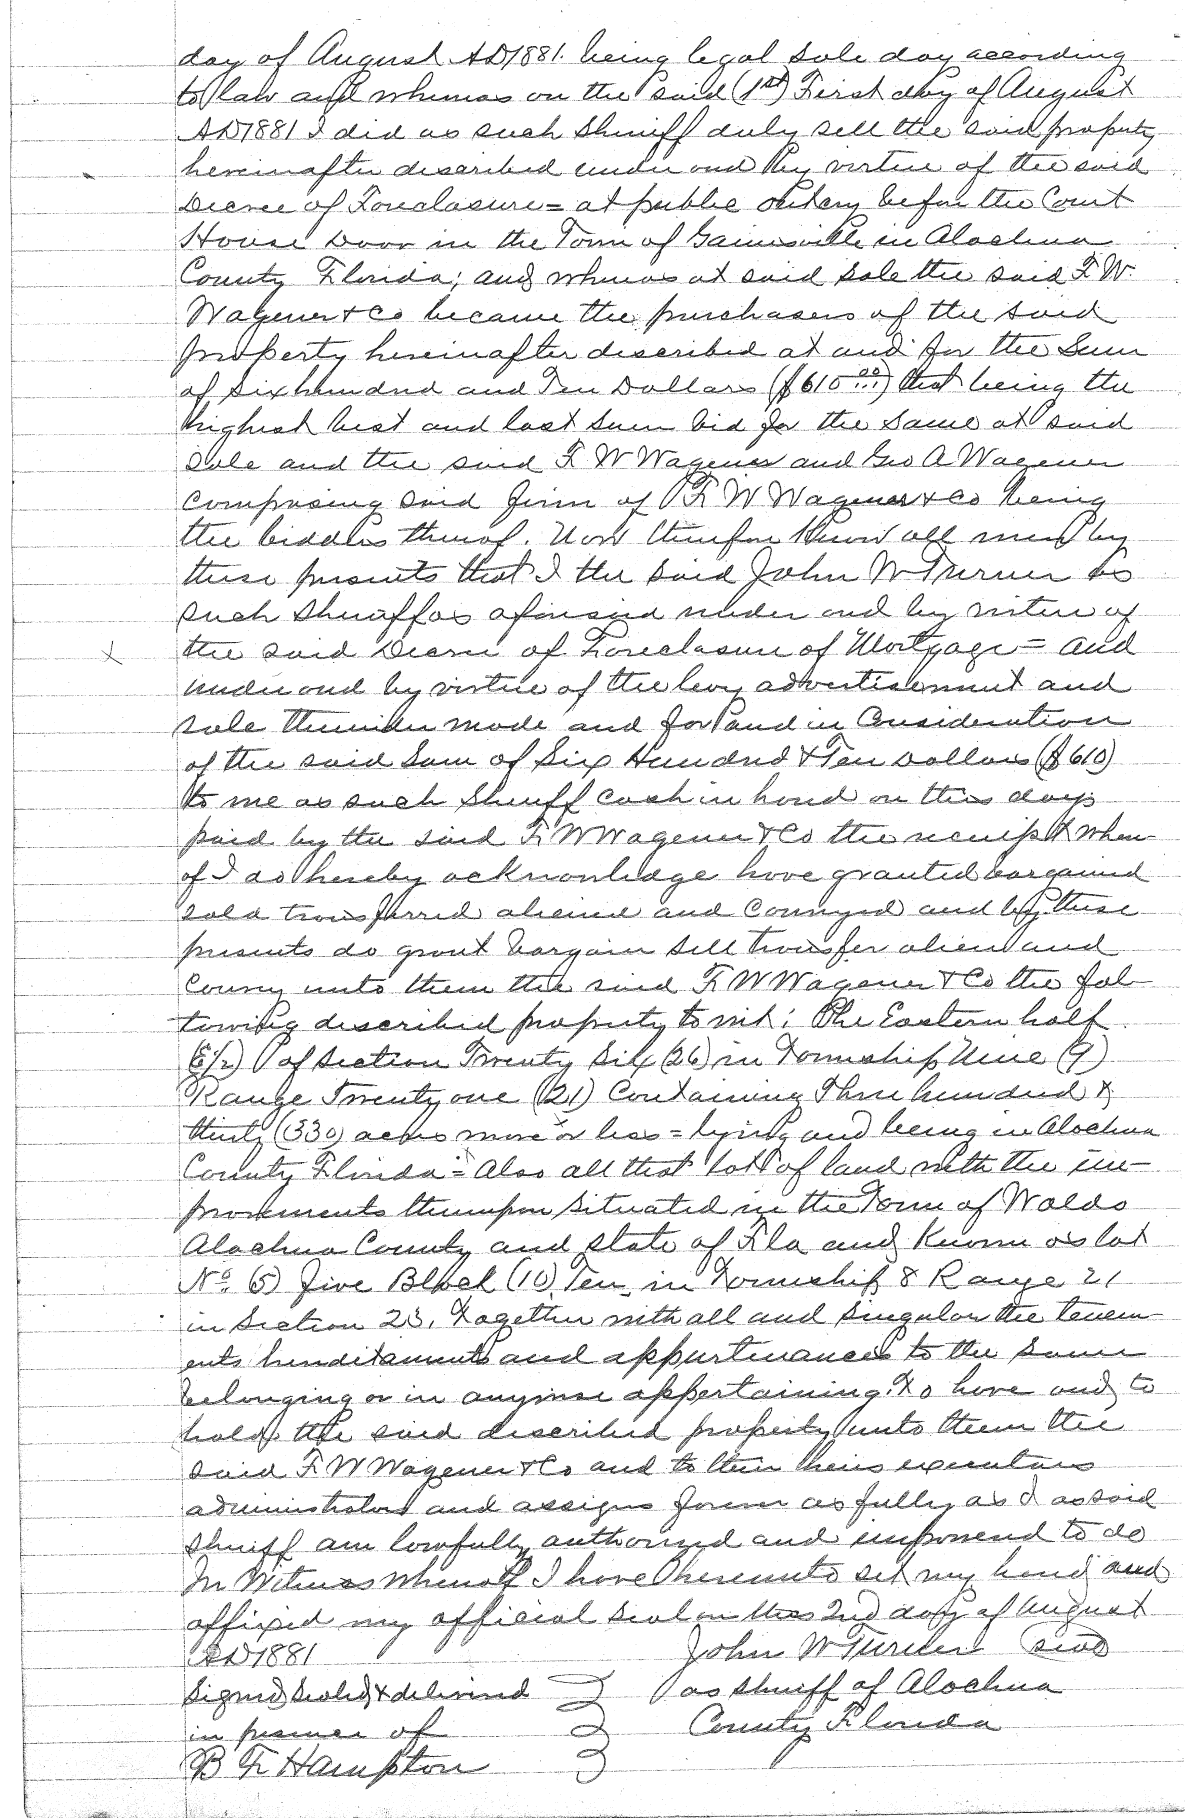 day of August AD1881. being legal sale day according
to law and whereas on the said (1st) First day of August
AD1881 I did as such Sheriff duly sell the said property
hereinafter described under and by virtue of the said
Decree of Foreclosure = at public outcry before the Court
House Door in the Town of Gainesville in Alachua
County Florida; and whereas at said sale the said F. W.
Wagener & Co became the purchasers of the said
property hereinafter described at and for the Sum
of Six hundred and Ten Dollars ($610 00) that being the
highest best and last sum bid for the same at said
Sale and the said F W Wagener and Geo A Wagener
composing said firm of F W Wagener & Co being
the bidders thereof. Now therefore Know all men by
these presents that I the said John W Turner as
such Sheriff as aforesaid under and by virtue of
the said Decree of Foreclosure of Mortgage = and
under and by virtue of the levy advertisement and
sale thereunder made and for and in Consideration
of the said Sum of Six Hundred & Ten Dollars ($610)
to me as such Sheriff cash in hand on this day
paid by the said F. W Wagener & Co the receipt when-
of I do hereby acknowledge have granted bargained
sold transferred aliened and conveyed and by these
presents do grant bargain sell transfer alien and
convey unto them the said F W Wagener & Co the fol-
lowing described property to wit: The Eastern half
(E 1/2) of Section Twenty Six (26) in Township Nine (9)
Range Twenty one (21) Containing Three hundred &
thirty (330) acres more or less = lying and being in Alachua
County Florida = Also all that lot of land with the im-
provements thereupon situated in the Town of Waldo
Alachua County and State of Fla and Known as lot
No. (5) five Block (10) Ten in Township 8 Range 21
in Section 23. Together with all and Singular the tenem-
ents hereditaments and appurtenances to the same
belonging or in anywise appertaining. To have and to
hold the said described property unto them the
said F W Wagener & Co and to their heirs executors
administrators and assigns forever as fully as I as said
Sheriff am lawfully authorized and empowered to do
In Witness Whereof I have hereunto set my hand and
affixed my official seal on this 2nd day of August
AD1881 John W Turner Seal
Signed, Sealed, & delivered as Sheriff of Alachua
in presence of County Florida
B F Hampton